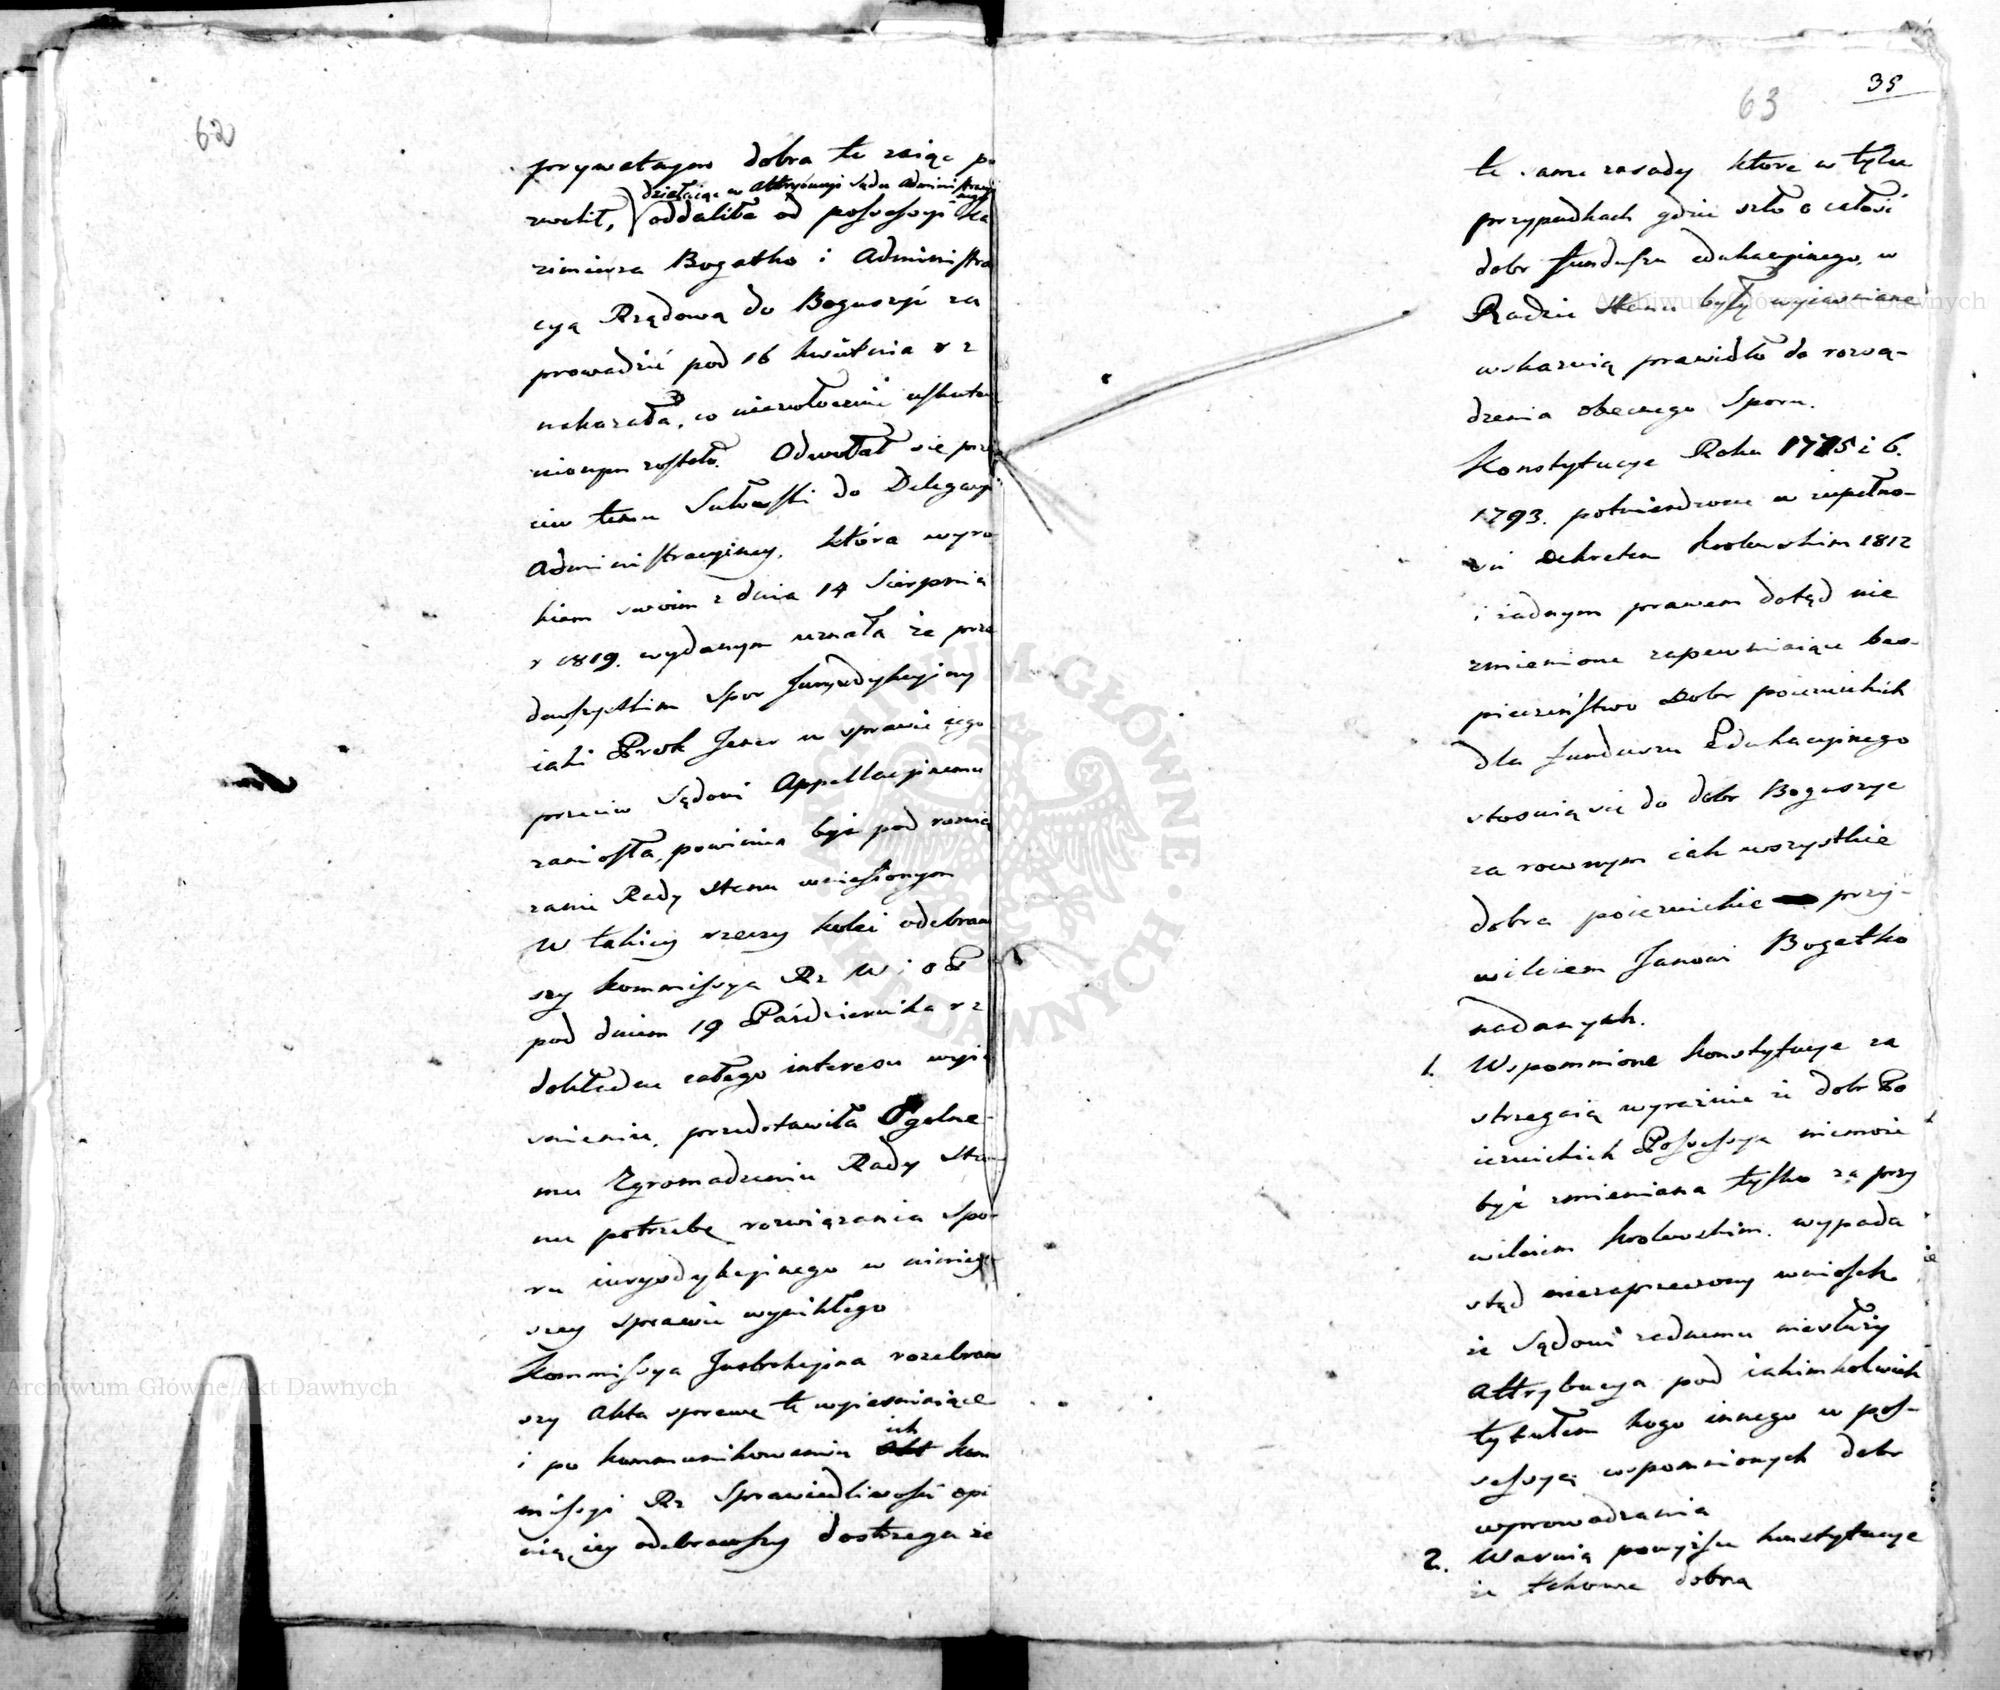 62
prywatnym dobra te zaiąć po
działaiąc w attrybucyi Sądu Administracyi
nego
zwolił, oddaliła od possessyi Ka
zimierza Bogatko i Administra
cyą Rządową do Boguszyc za
prowadzić pod 16 kwietnia r z
nakazała, co niezwłocznie uskutecz
nionym zostało. Odwołał się prze
ciw temu Sułowski do Delegacyi
Administracyiney, która wyro
kiem swoim z dnia 14 Sierpnia
r 1819. wydanym uznała że prze
dewszystkim Spor Juryzdykcyiny
iaki Prok Jener w sprawie iego
przeciw Sądowi Appellacyinemu
zaniosła, powinien być pod rozwią
zanie Rady Stanu wniesionym
W takiey rzeczy kolei odebraw
szy Kommissya Rz W i O P
pod dniem 19 Października r z
dokładne całego interesu wyia
śnienie, przedstawiła Ogolne
mu Zgromadzeniu Rady Sta
nu potrzebę rozwiązania spo
ru iuryzdykcyinego w ninieg
szey sprawie wynikłego
Kommissya Instrukcyina rozebraw
szy Akta sprawę tę wyiaśniaiące
ich
i po kommunikowaniu Kom
missyi Rz Sprawiedliwości opi
nią iey odebrawszy dostrzega że
63
35
te same zasady które w tylu
przypadkach gdzie szło o całość
dobr funduszu edukacyinego, w
Radzie Stanu były wyiaśniane
wskazuią prawidło do rozsą-
dzenia obecnego Sporu.
Konstytucye Roku 1775 i 6.
1793. potwierdzone w zupełno-
ści Dekretem Krolewskim 1812
i żadnym prawem dotąd nie
zmienione zapewniaiące bes-
pieczeństwo Dobr poiezuickich
dla funduszu Edukacyinego
stosuią się do dobr Boguszyc
za rownym iak wszystkie
dobra poiezuickie przy-
wileiem Janowi Bogatko
nadanych.
1. Wspomnione Konstytucye za
strzegaią wyraźnie że dobr Po
iezuickich Possessya niemoże
być zmieniana tylko za przy
wileiem Krolewskim. wypada
stąd niezaprzeczony wniosek
że Sądowi żadnemu niesłuży
Attrybucya pod iakimkolwiek
tytułem kogo innego w pos-
sessyą wspomnionych dobr
wprowadzania
2. Waruią powyższe konstytucye
że takowe dobra
Archiwum Główne Akt Dawnych
Archiwum Główne Akt Dawnych
ARCHIWUM GŁÓWNE AKT DAWNYCH